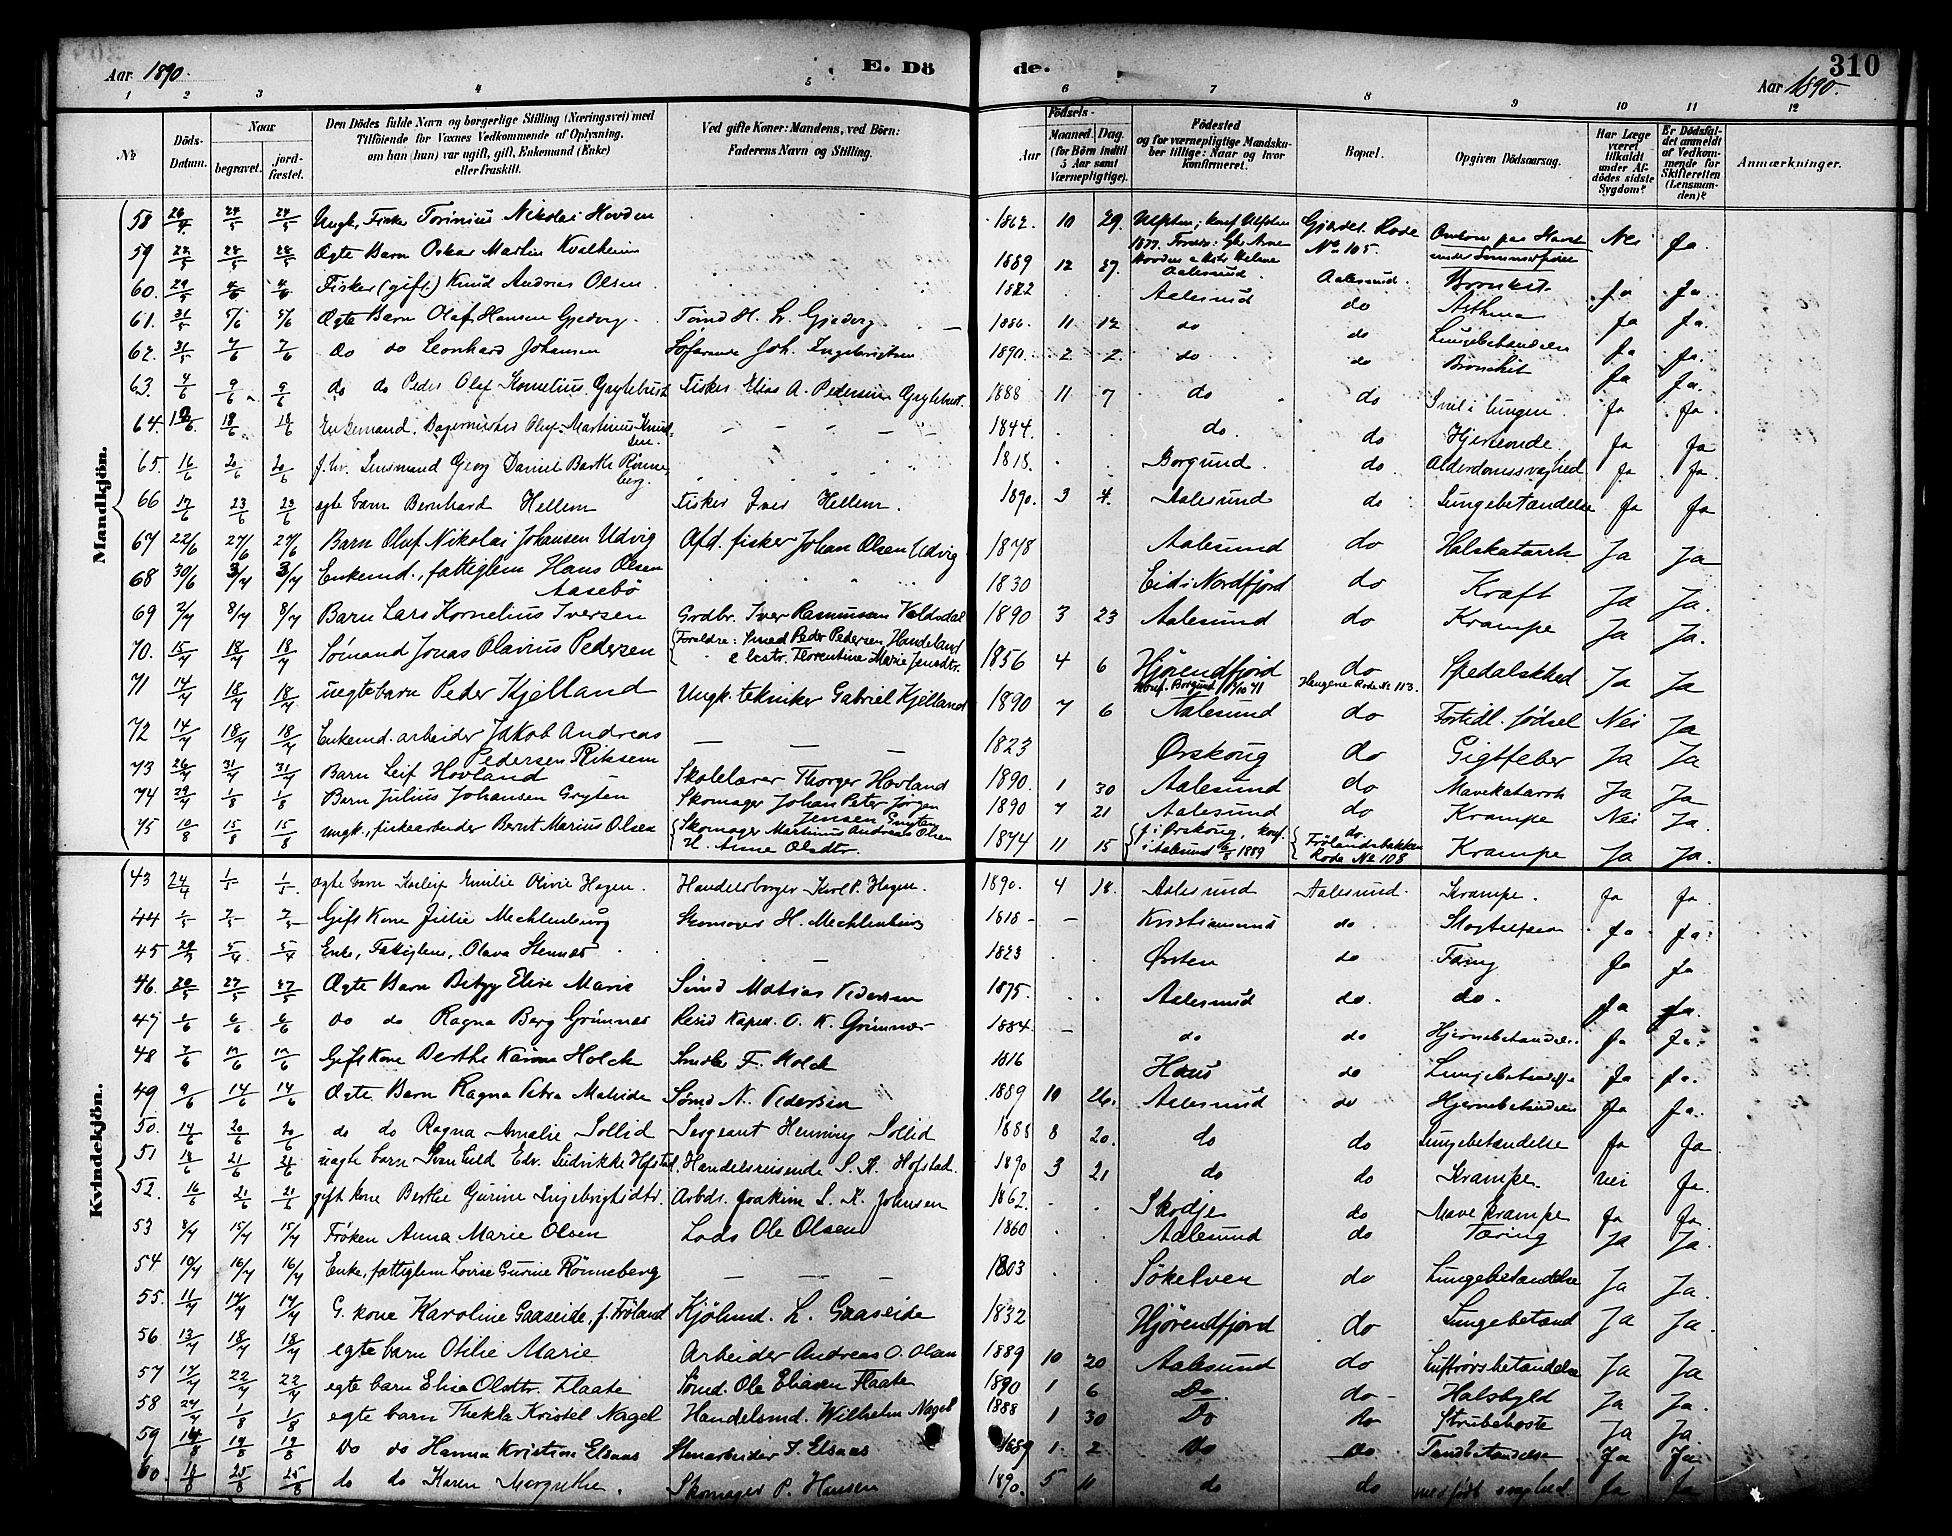 Aar 1890.
E. Dö de.
310
Aar 1890.
1 2 3 4 5 6 7 8 9 10 11 12
№
Döds-Datum.
Naar
begravet.
jordfæstet.
Den Dödes fulde Navn og borgerlige Stilling (Næringsvei) med
Tilföiende for Voxnes Vedkommende af Oplysning,
om han (hun) var ugift, gift, Enkemand (Enke)
eller fraskilt.
Ved gifte Koner: Mandens, ved Börn:
Faderens Navn og Stilling.
Födsels-
Aar
Maaned. Dag.
(for Börn indtil
5 Aar samt
Værnepligtige).
Födested
og for værnepligtige Mandskaber tillige: Naar og hvor
konfirmeret.
Bopæl.
Opgiven Dödsaarsag.
Har Læge
været
tilkaldt
under Afdödes sidste
Sygdom?
Er Dödsfaldet anmeldt
af Vedkommende for
Skifteretten
(Lensmanden)?
Anmærkninger.
Mandkjön.
58 Ungk. Fisker Torinius Nikolai Hovden 1862. 10 29. Nei Ja
59 Ægte Barn Oskar Martin Kvalheim 1889 12 27. Aalesund Aalesund. Bronkit Ja Ja.
60. Fisker (gift) Knud Andreas Olsen Aalesund do Asthma Ja Ja.
61. 31/5 5/6 5/6 Ægte Barn Olaf Hansen Gjedvig Tömd H. L. Gjedvig 1886 11 12 do do Lungebetændelse Ja Ja.
62. 31/5 7/6 7/6 do do Leonhard Johansen Söfarende Joh. Ingebrigtsen 1890. 2 2. do do Bronkit Ja Ja.
63. 4/6 9/6 9/6 do do Peder Olaf Kornelius Gryttebust Fisker Elias A. Pedersen Gryttebust. 1888 11 7 do do Ja Ja.
64. 18/6 18/6 Enkemand. Bagermester Oluf Martinius Knudsen. 1844. do. do Hjerteonde Ja Ja
65. 16/6 20/6 20/6 f. hv. Lensmand Georg Daniel Barth Rönneberg. 1818. Borgund. do. Alderdomssvaghed Ja Ja.
66 17/6 23/6 23/6 ægte barn Bernhard Hellem Fisker Iver Hellem. 1890. 3 4. Aalesund do Lungebetændelse Ja Ja
67 22/6 27/6 27/6 Barn Oluf Nikolai Johansen Udvig Afd. fisker Johan Olsen Udvig 1878 Aalesund do Halskatarrh Ja Ja
68 30/6 3/7 3/7 Enkemd., fattiglem Hans Olsen Aasebö 1830 Eid i Nordfjord do Kræft Ja Ja.
69 2/7 8/7 8/7 Barn Lars Kornelius Iversen Grdbr. Iver Rasmussen Valdsdal 1890 3 23 Aalesund do Krampe Ja Ja.
70. 15/7 18/7 18/7 Sömand Jonas Olavius Pedersen Forældre: Smed Peder Pedersen Handeland & hstr. Florentine Marie Jensdtr. 1856 4 6 Hjörendfjord konf. Borgund do Haugene Rode № 113. Spedalskhed Ja Ja
71 14/7 18/7 18/7 uægte barn Peder Kjelland Ungk. tekniker Gabriel Kjelland 1890 7 6 Aalesund do Fortidl. födsel Nei Ja
72 14/7 18/7 18/7 Enkemd. arbeider Jakob Andreas Pedersen Riksem 1823 Ørskoug do Gigtfeber Ja Ja
73 26/7 31/7 31/7 Barn Leif Hovland Skolelærer Thorger Hovland 1890. 1 30 Aalesund do Mavekatarrh Ja Ja
74 29/7 1/8 1/8 Barn Julius Johansen Gryten Skomager Johan Peter Jörgen Jensen Gryten 1890 7 21 Aalesund do Krampe Nei Ja.
75 10/8 15/8 15/8 ungk., fiskearbeider Bernt Marius Olsen Skomager Martinus Andreas Olsen H. Anne Olsdtr. 1874 11 15 f. i Ørskoug, konf. i Aalesund 1889 do. Frölandsbakken Rode № 108 Krampe Ja Ja.
Kvindekjön.
43 24/4 1/5 1/5 Ægte barn Emilie Olivie Hagen. Handelsborger Karl P. Hagen. 1890. 4 18. Aalesund Aalesund. Krampe. Ja Ja.
44 Gift Kone Julie Mechlenburg Skomager H. Mechlenburg 1818 Kristiansund do Ja Ja.
45 Enke, Fattiglem, Olava Stennes 1823 Ørsten do Tæring Ja Ja
46. 20/5 27/5 27/5 Ægte Barn Betzy Elise Marie Sömd Mathias Pedersen 1875. Aalesund do. do. Ja Ja.
47 do do Ragna Berg Grimnes Resid Kapel. O. K. Grimnes 1884. do do Hjernebetændelse. Ja Ja.
48 Gift Kone Berthe Karine Holck F. Holck 1816 Haus do Lungebetændelse Ja Ja.
49 9/6 14/6 14/6 Ægte Barn Ragna Petra Mathilde Sömd N. Pedersen 1889 10 26. Aalesund do Hjernebetændelse Ja Ja.
50. 14/6 20/6 20/6 do do Ragna Amalie Sollid Sergeant Henning Sollid 1888 8 20. do do Lungebetændelse Ja Ja
51 uægte barn Hofstad. Handelsreisende S. K. Hofstad. 1890 3 21 do do Krampe. Nei Ja.
52. 16/6 21/6 21/6 gift kone Berthe Gurine Ingebrigtsdtr. Arbds. Joakim L. K. Johnsen 1862. Skodje do Mavekrampe Ja Ja.
53 8/7 15/7 15/7 Fröken Anna Marie Olsen Lods Ole Olsen 1860 Aalesund do Tæring Ja Ja.
54 10/7 16/7 16/7 Enke, fattiglem Lovise Gurine Rönneberg 1803 Sökelven do Lungebetændelse Ja Ja.
55. 11/7 17/7 17/7 G. kone Karoline Gaaseide, f. Fröland Kjölmd. L. Gaaseide 1832 Hjörendfjord do Lungebetænd Ja Ja.
56 13/7 18/7 18/7 egte barn Otilie Marie Arbeider Andreas O. Olsen 1889 10 20 Aalesund do Luftrörsbetændelse Ja Ja
57 17/7 22/7 22/7 egte barn Elise Olsdtr. Flaate Sömd. Ole Eliasen Flaate 1890 1 6 Do. do Halsbyld Ja Ja.
58 24/7 1/8 1/8 egte barn Thekla Kristel Nagel Handelsmd. Wilhelm Nagel 1888 1 30 Do do Strubehoste Ja Ja.
59 14/8 19/8 19/8 do do Hanna Kristine Elsaas Stenarbeider I. Elsaas 1889 1. 2 do do Tandbetændelse Ja Ja.
60 18/8 25/8 25/8 do do Karen Margrethe. Skomager P. Hansen 1890. 5 11 do do medfödt svaghed Ja Ja